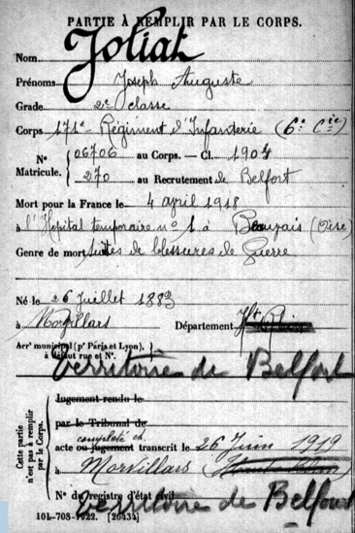 PARTIE À REMPLIR PAR LE CORPS.
Nom Joliat
Prénoms Joseph Auguste
Grade 2e classe
Corps 171e Régiment d'Infanterie (6e Cie)
N° Matricule. { 06706 au Corps. — Cl. 1904
270 au Recrutement de Belfort
Mort pour la France le 4 april 1918
à l'Hôpital temporaire n° 1 à Beauvais (Oise)
Genre de mort suites de blessures de Guerre
Né le 26 Juillet 1883
à Morvillars Département Ht Rhin
Arrt municipal (pr Paris et Lyon), à défaut rue et N°.
territoire de Belfort
Cette partie n'est pas à remplir par le Corps.
Jugement rendu le
par le Tribunal de
complété ch.
acte ou jugement transcrit le 26 Juin 1919
à Morvillars (Haut Rhin)
N° du registre d'état civil
territoire de Belfort
101-708-1922. [26434]